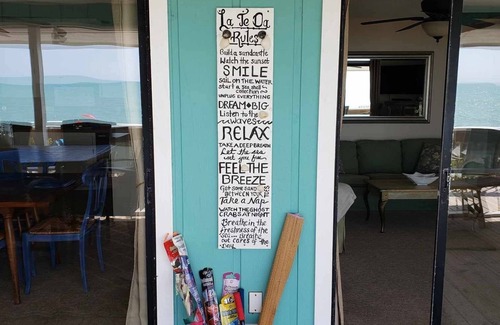 La Te Da
Rules
Build a sandcastle
Watch the sunset
SMILE
SAIL ON THE WATER
start a sea shell
collection
UNPLUG EVERYTHING
DREAM BIG
Listen to the
waves
RELAX
TAKE A DEEP BREATH
Let the sea
set you free
FEEL THE
BREEZE
Get some sand
BETWEEN YOUR TOES
Take a Nap
WATCH THE GHOST
CRABS AT NIGHT
Breathe in the
freshness of the
sea
out cares of the
day